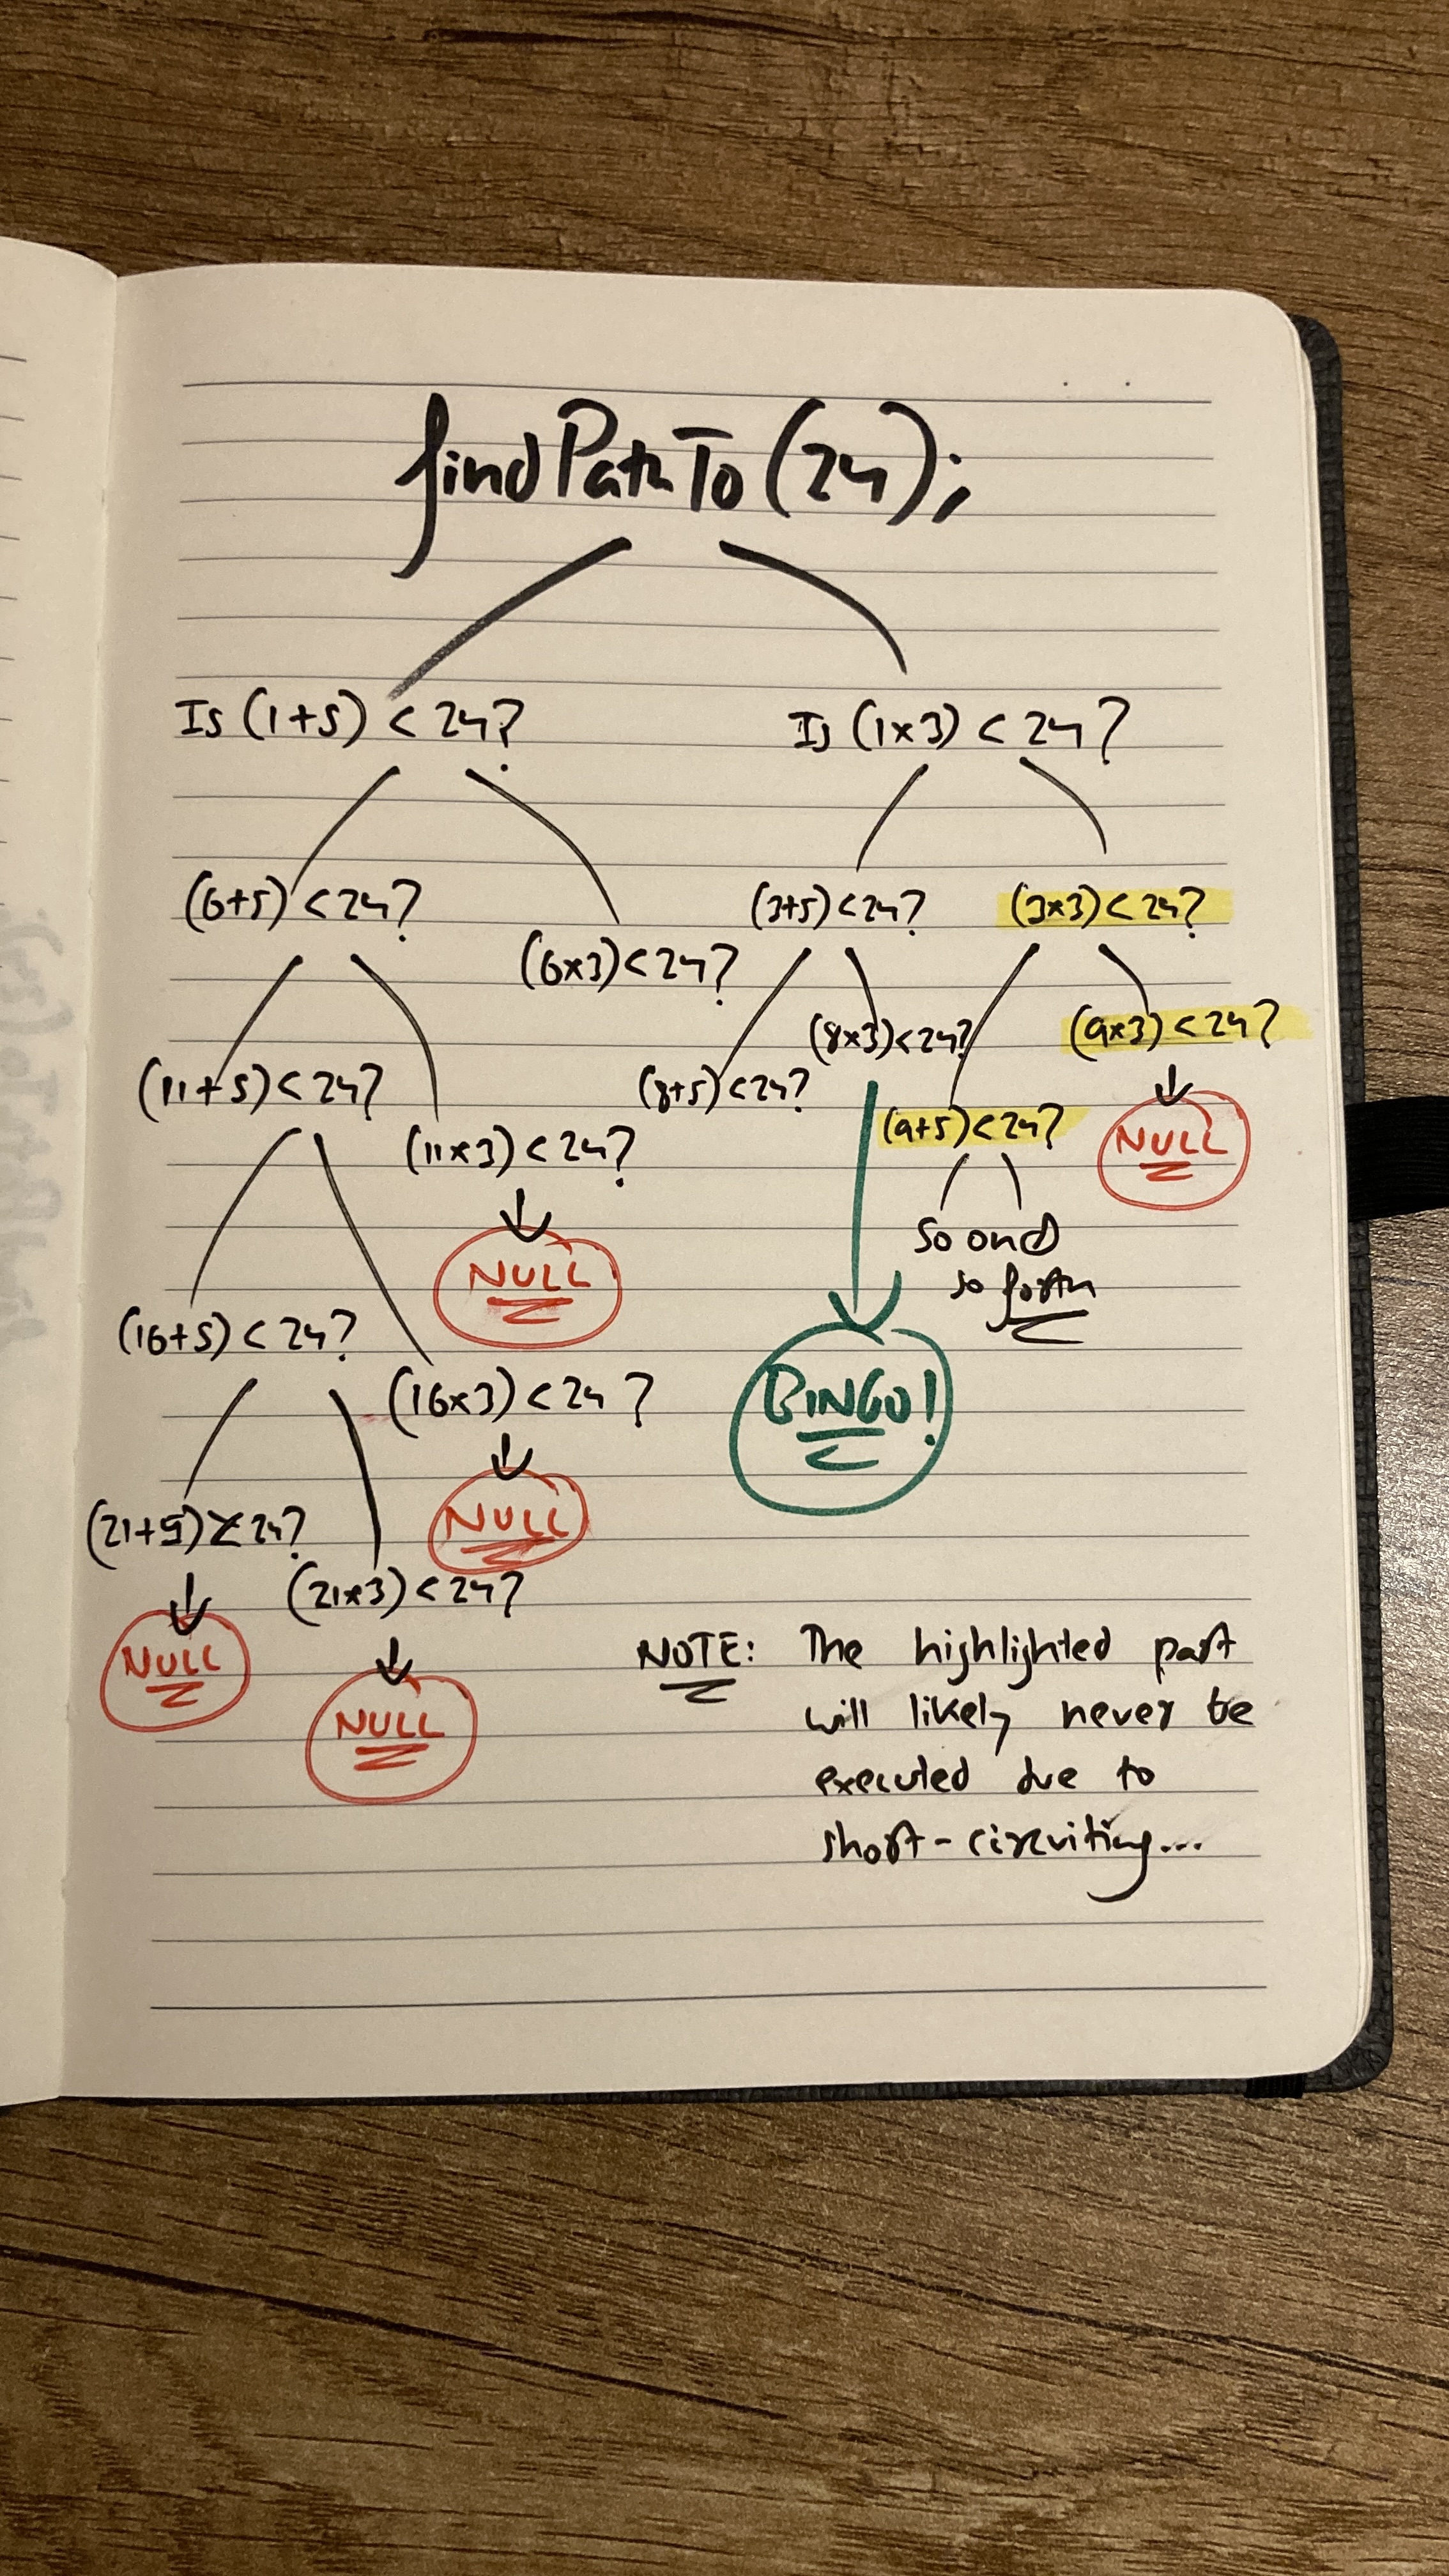 findPathTo(24);
Is (1+5) < 24?
Is (1×3) < 24?
(6+5) < 24?
(3+5) < 24?
(3×3) < 24?
(6×3) < 24?
(8×3) < 24?
(9×3) < 24?
(11+5) < 24?
(8+5) < 24?
(9+5) < 24?
NULL
(11×3) < 24?
NULL
So and
so forth
(16+5) < 24?
(16×3) < 24?
NULL
BINGO!
(21+5) < 24?
(21×3) < 24?
NULL
NULL
NOTE: The highlighted part
will likely never be
executed due to
short-circuiting...